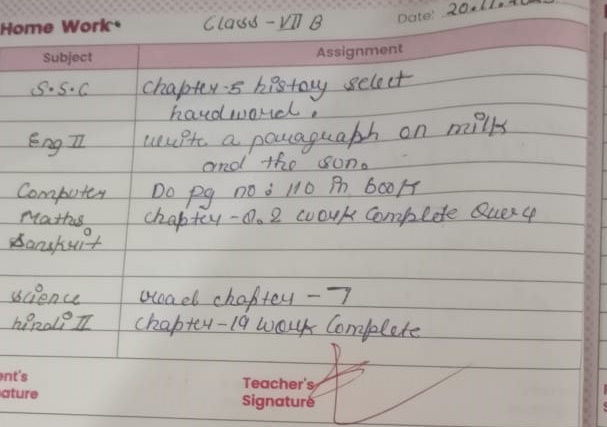 Home Work Class - VII B Date: 20.11.
Subject Assignment
S.S.C Chapter-5 history select
hardword.
Eng II write a paragraph on milk
and the sun.
Computer Do pg no: 110 in book
Maths Chapter - 8.2 work Complete Query
Sanskrit
science read chapter - 7
hindi II Chapter-19 work Complete
ent's Teacher's
ature Signature